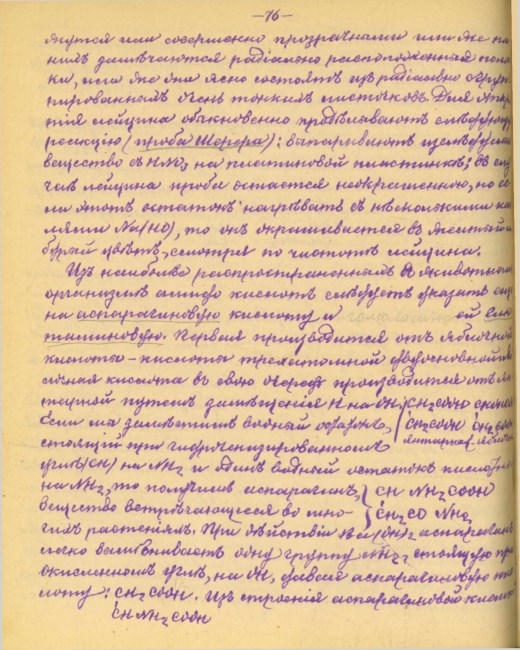 —76—
яются или совершенно прозрачными или же на
нихъ замѣчаются радіально расположенныя полос
ки, или же они ясно состоятъ изъ радіально груп
пированныхъ очень тонкихъ листочковъ. Для откры
тія лейцина обыкновенно продѣлываютъ слѣдующую
реакцію (проба Шерера): выпариваютъ изслѣдуемое
вещество съ HNO3 на платиновой пластинкѣ; въ слу
чаѣ лейцина проба остается неокрашенною, но ес
ли этотъ остатокъ нагрѣвать съ нѣсколькими кап
лями Na(HO), то онъ окрашивается въ желтый и
бурый цвѣтъ, смотря по чистотѣ лейцина.
Изъ наиболѣе распространенныхъ въ животномъ
организмѣ амидо кислотъ слѣдуетъ указать еще
на аспарагиновую кислоту и ей глю
таминовую. Первая производится отъ яблочной
кислоты – кислота трехатомной двуосновной. Яб
лочная кислота въ свою очередь производится отъ ян
тарной путемъ замѣщенія H на OH. CH2COOH CHOHCOOH
Если мы замѣстимъ водный остатокъ, CH2COOH CH2COOH
стоящій при гидрогенизированномъ янтарная. яблочн.
углѣ (CH) на NH2 и одинъ водный остатокъ кислотный
на NH2, то получимъ аспарагинъ, CH NH2 COOH
вещество встрѣчающееся во мно- CH2 CO NH2
гихъ растеніяхъ. При дѣйствіи аспарагинъ
легко вымѣниваетъ одну группу NH2, стоящую при
окисленномъ углѣ, на OH, давая аспарагиновую кис
лоту: CH2 COOH. Изъ строенія аспарагиновой кислоты
CH NH2 COOH